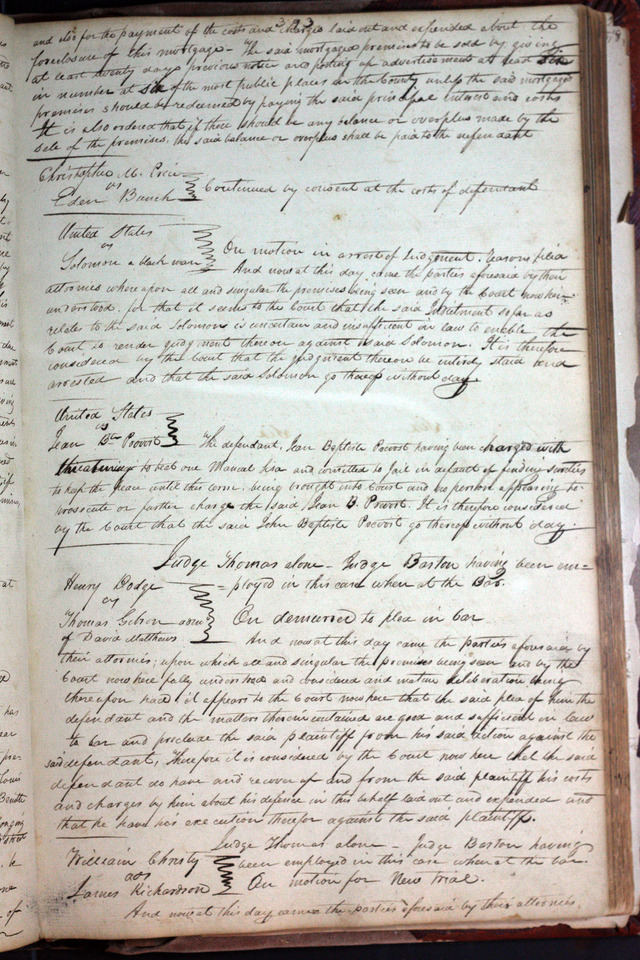 323
and also for the payment of the costs and charges laid out and expended about the
foreclosure of this mortgage – The said mortgaged premises to be sold by giving
at least twenty days previous notice and posting up advertisements at least Six
in number at six of the most public places in the County unless the said mortgaged
premises should be redeemed by paying the said principal interest and costs
It is also ordered that if there should be any balance or overplus made by the
sale of the premises, the said balance or overplus shall be paid to the defendant
Christopher M. Price
vs
Eden Bauch
Continued by consent at the costs of defendant
United States
vs
Solomon a black man
On motion in arrest of Judgement. Reasons filed
And now at this day came the parties aforesaid by their
attornies where upon all and singular the premises being seen and by the Court now here
understood. for that it seems to the Court that the said Indictment so far as
relates to the said Solomon is uncertain and insufficient in law to enable the
Court to render judgment thereon against said Solomon. It is therefore
considered by the Court that the judgement thereon be intirely staid and
arrested and that the said Solomon go thereof without day.
United States
vs
Jean Bte Provost
The defendant, Jean Baptiste Provost having been charged with
threatening to beat one Manuel and committed to Jail in default of finding sureties
to keep the peace until this term. being brought into Court and no person appearing to
prosecute or further charge the said Jean B. Provost. It is therefore considered
by the Court that the said John Baptiste Provost go thereof without day.
Judge Thomas alone – Judge Barton having been em=
=ployed in this case when at the Bar.
Henry Dodge
vs
Thomas Gibson admr
of David Matthews
On demurrer to plea in bar
And now at this day came the parties aforesaid by
their attornies; upon which all and singular the premises being seen and by the
Court now here fully understood and considered and mature deliberation being
thereupon had, it appears to the Court now here that the said plea of him the
defendant and the matters therein contained are good and sufficient in law
to bar and preclude the said plaintiff from his said action against the
said defendant; Therefore it is considered by the Court now here that the said
defendant do have and recover of and from the said plaintiff his costs
and charges by him about his defence in this behalf laid out and expended and
that he have his execution therefor against the said plaintiff.
Judge Thomas alone – Judge Barton having
been employed in this case when at the bar.
William Christy
ads
James Richardson
On motion for New Trial.
And now at this day came the parties aforesaid by their attornies